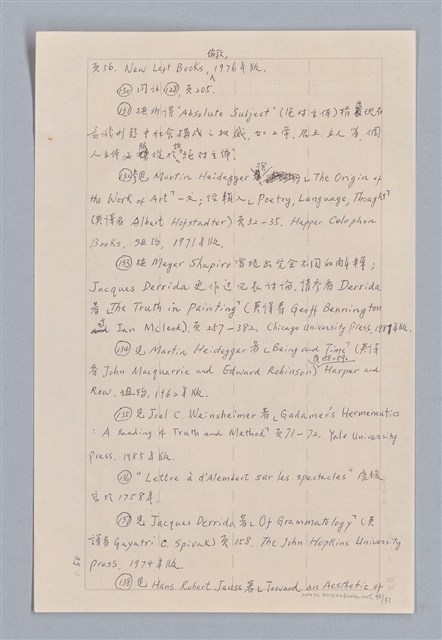 倫敦,
頁56. New Left Books, 1976年版.
(130) 同註(128), 頁205.
(131) 按所謂"Absolute Subject"(絕对主体)指出現在
意識形態中社會構成之权威, 如上帝、君主、主人等, 個
人主体必臣服於絕对主体.
(132) 見 Martin Heidegger 著「The Origin of
the Work of Art」一文; 編入「Poetry, Language, Thought」
(英譯者 Albert Hofstadter) 頁32–35, Harper Colophon
Books, 紐約, 1971年版.
(133) 按 Meyer Shapiro 曾提出完全不同的解釋;
Jacques Derrida 更作过反覆討论, 請參看 Derrida
著「The Truth in Painting」(英譯者 Geoff Bennington
and Ian McLeod), 頁257–382, Chicago University Press, 1987年版.
(134) 見 Martin Heidegger 著「Being and Time」(英譯
頁188–89.
者 John Macquarrie and Edward Robinson) Harper and
Row. 紐約, 1962年版.
(135) 見 Joel C. Weinsheimer 著「Gadamer's Hermeneutics
: A Reading of Truth and Method」頁71–72. Yale University
press. 1985年版.
(136) "Lettre à d'Alembert sur les spectacles" 盧梭
寫於1758年.
(137) 見 Jacques Derrida 著「Of Grammatology」(英
譯者 Gayatri C. Spivak) 頁158. The John Hopkins University
press. 1974年版.
(138) 見 Hans Robert Jauss 著「Toward an Aesthetic of